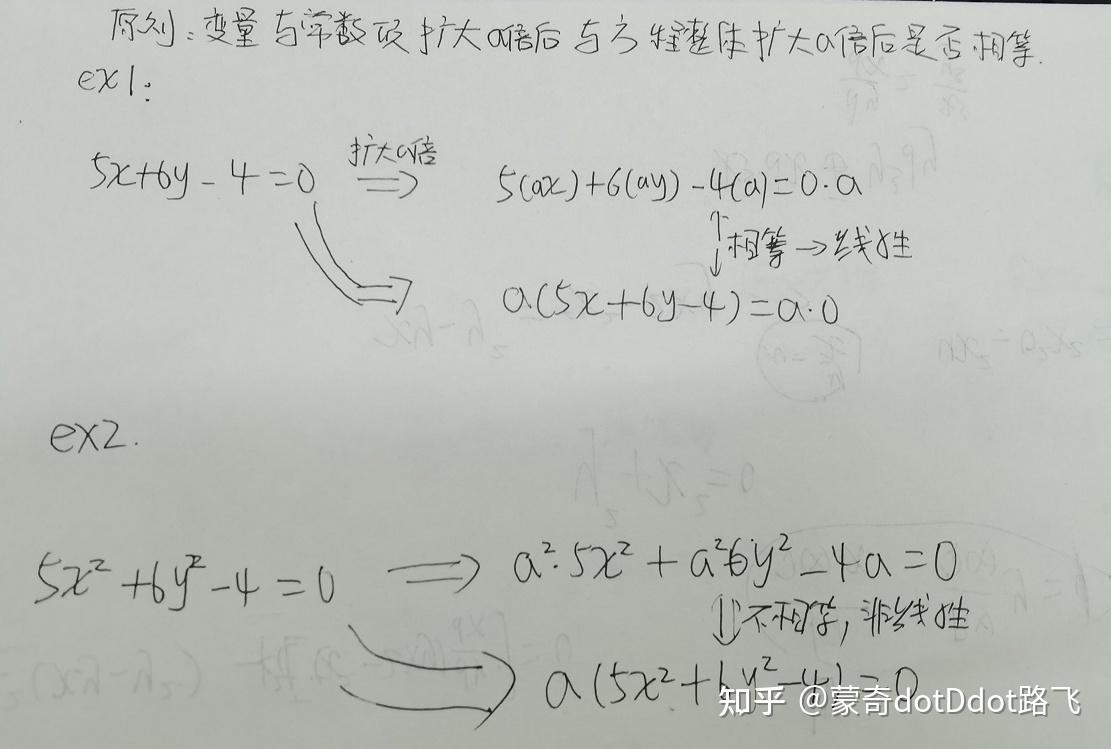 原则：变量与常数项扩大a倍后与方程整体扩大a倍后是否相等.
ex1:
5x+6y-4=0 扩大a倍 ⇒ 5(ax)+6(ay)-4(a)=0·a
↕相等→线性
a(5x+6y-4)=a·0
ex2.
5x²+6y²-4=0 ⇒ a²·5x²+a²6y²-4a=0
不相等，非线性
a(5x²+6y²-4)=0
知乎 @蒙奇dotDdot路飞